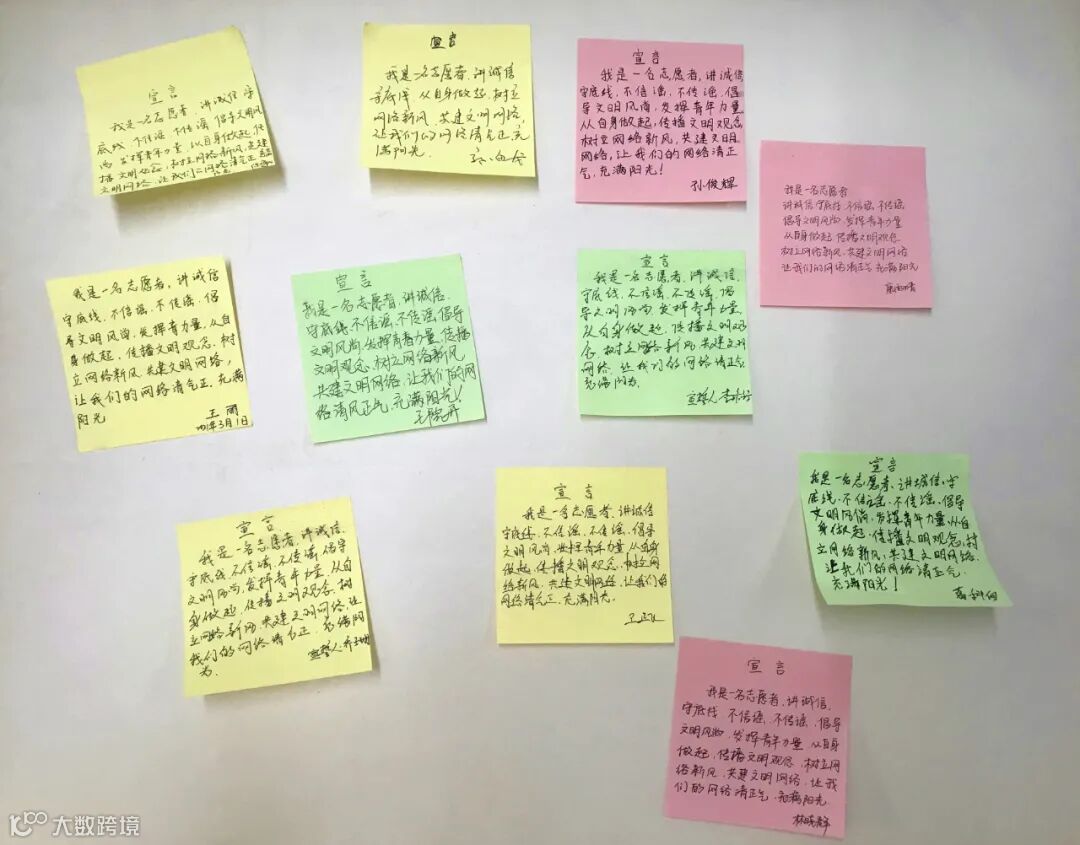 宣言
我是一名志愿者,讲诚信 守
底线 不信谣 不传谣 倡导文明风
尚 发挥青年力量,从自身做起,传
播文明观念,树立网络新风,共建
文明网络,让我们的网络清气正
宣言
我是一名志愿者,讲诚信
守底线,从自身做起,树立
网络新风,共建文明网络,
让我们的网络清气正充
满阳光.
宣言
我是一名志愿者,讲诚信
守底线,不信谣,不传谣,倡
导文明风尚,发挥青年力量
从自身做起,传播文明观念
树立网络新风,共建文明
网络,让我们的网络清正
气,充满阳光!
孙俊辉
我是一名志愿者
讲诚信,守底线,不信谣,不传谣
倡导文明风尚,发挥青年力量
从自身做起,传播文明观念
树立网络新风,共建文明网络
让我们的网络清正气,充满阳光
我是一名志愿者,讲诚信
守底线,不信谣,不传谣,倡
导文明风尚,发挥青力量,从自
身做起,传播文明观念,树
立网络新风 共建文明网络,
让我们的网络清气正,充满
阳光
王丽
3月1日
宣言
我是一名志愿者,讲诚信,
守底线,不信谣,不传谣,倡导
文明风尚,发挥青春力量,传播
文明观念,树立网络新风
共建文明网络,让我们的网
络清风正气,充满阳光!
宣言
我是一名志愿者,讲诚信,
守底线,不信谣,不传谣,倡
导文明风尚,发挥青年力量,
从自身做起,传播文明观
念,树立网络新风,共建文明
网络,让我们的网络清正气
充满阳光.
宣誓人:李
宣言
我是一名志愿者,讲诚信,守
底线,不信谣,不传谣,倡导
文明风尚,发挥青年力量,从自
身做起,传播文明观念,树
立网络新风,共建文明网络.
让我们的网络清正气
充满阳光!
宣言
我是一名志愿者,讲诚信,
守底线,不信谣,不传谣,倡导
文明风尚,发挥青年力量,从自
身做起,传播文明观念,树
立网络新风,共建文明网络,让
我们的网络清气正,充满阳
宣誓人:
宣言
我是一名志愿者,讲诚信
守底线,不信谣,不传谣,倡导
文明风尚,发挥青年力量,从自身
做起,传播文明观念,树立网
络新风,共建文明网络,让我们的
网络清气正,充满阳光.
宣言
我是一名志愿者,讲诚信,
守底线,不信谣,不传谣,倡导
文明风尚,发挥青年力量,从自身
做起,传播文明观念,树立网
络新风,共建文明网络,让我
们的网络清正气,充满阳光.
林晓
大数跨境